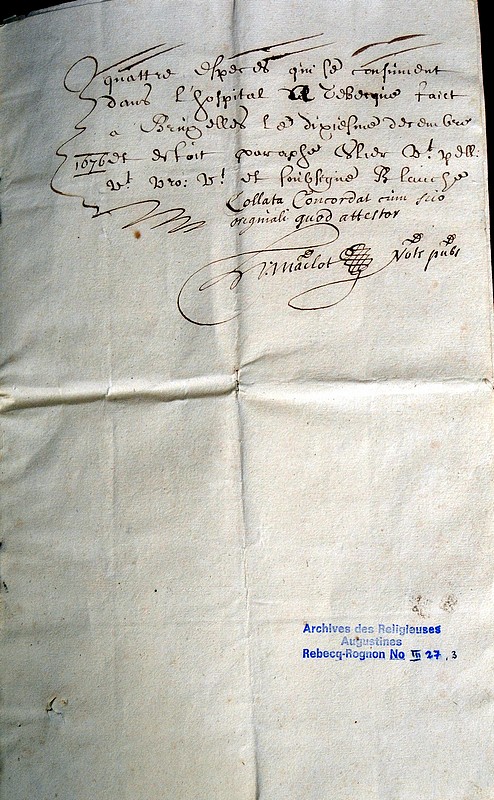 quattre especes qui se consument
dans l'hospital de Rebecque faict
a Bruxelles le dixiesme decembre
1676 et estoit paraphé vt
vt et soubsegné Blanche
Collata Concordat cum suo
originali quod attestor
Maclot Nots pubs
Archives des Religieuses
Augustines
Rebecq-Rognon No III 27, 3